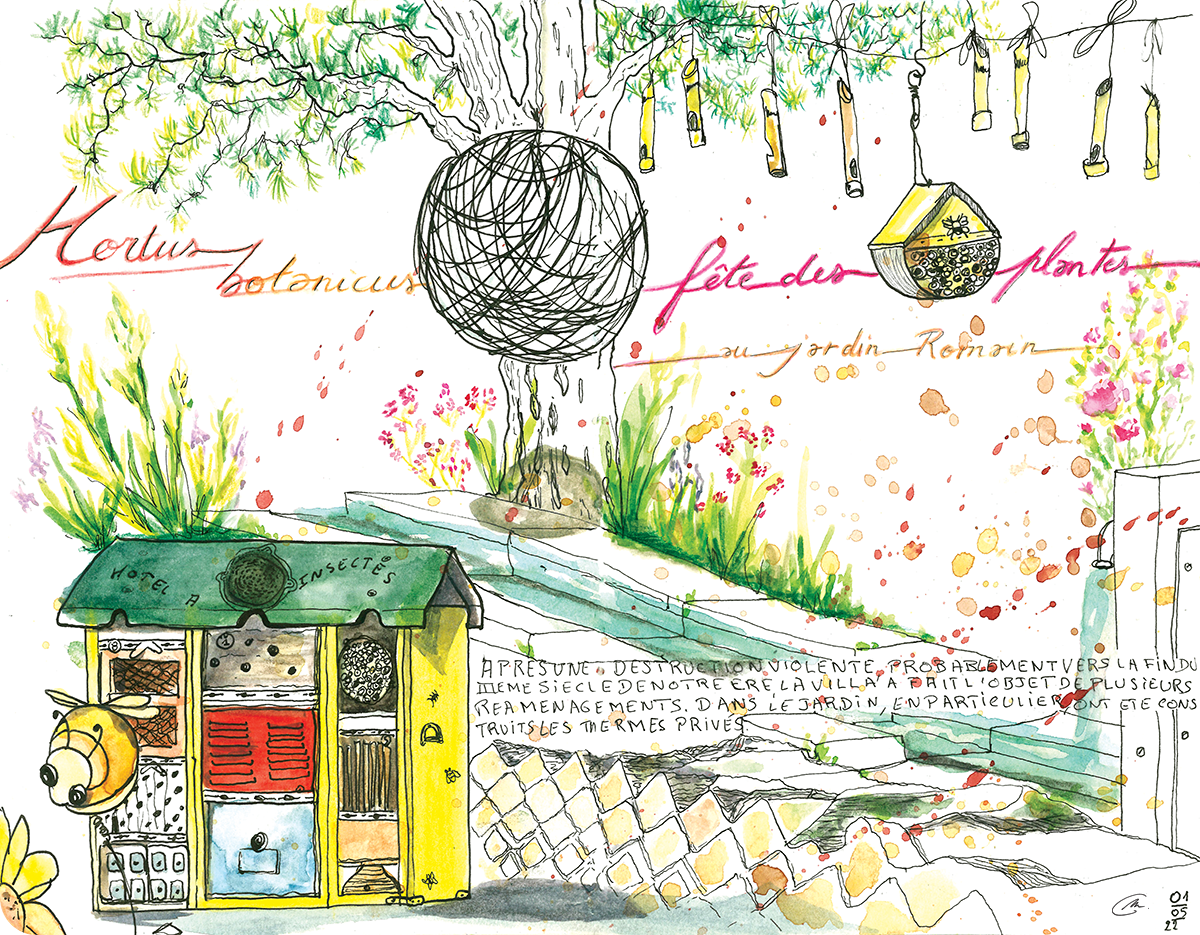 Hortus
botanicus
fête des plantes
au jardin Romain
HOTEL A INSECTES
APRES UNE DESTRUCTION VIOLENTE, PROBABLEMENT VERS LA FIN DU
IIIEME SIECLE DE NOTRE ERE, LA VILLA A FAIT L'OBJET DE PLUSIEURS
REAMENAGEMENTS. DANS LE JARDIN, EN PARTICULIER, ONT ETE CONS
TRUITS LES THERMES PRIVES
01
05
22